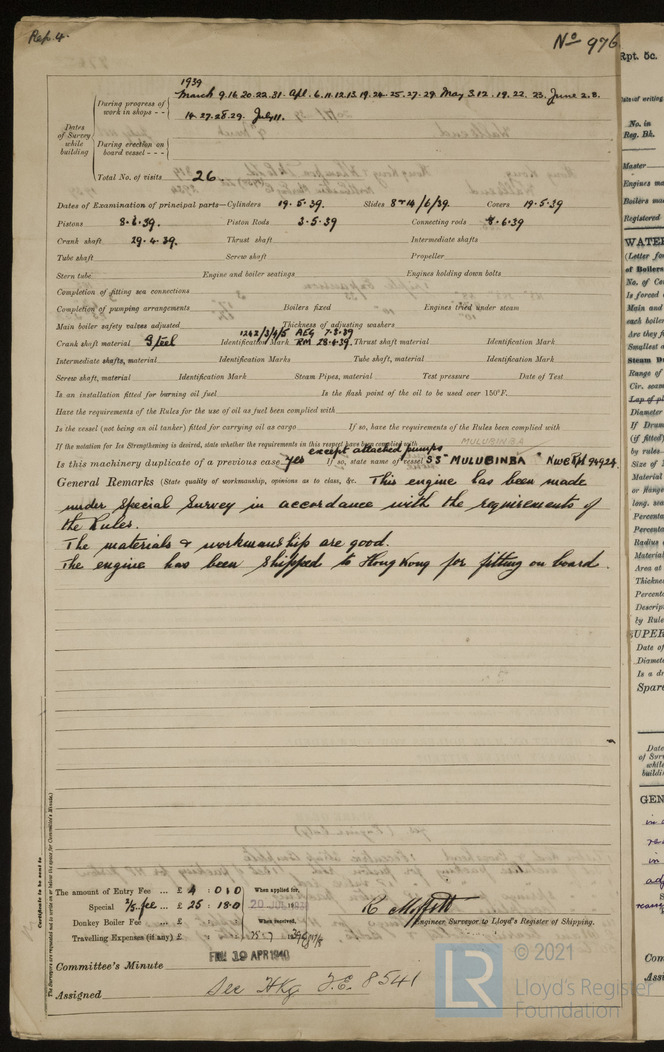 Rep. 4.
No 976
1939
During progress of work in shops - - March 9.16.20.22.31. Apl. 6.11.12.13.19.24.25.27.29. May 3.12.19.22.23. June 2.8.
14.27.28.29. July 11.
Dates of Survey while building
During erection on board vessel - - -
Total No. of visits 26.
Dates of Examination of principal parts—Cylinders 19.5.39. Slides 8 & 14/6/39. Covers 19.5.39
Pistons 8.6.39. Piston Rods 3.5.39 Connecting rods 8.6.39
Crank shaft 29.4.39. Thrust shaft Intermediate shafts
Tube shaft Screw shaft Propeller
Stern tube Engine and boiler seatings Engines holding down bolts
Completion of fitting sea connections
Completion of pumping arrangements Boilers fixed Engines tried under steam
Main boiler safety valves adjusted Thickness of adjusting washers
1242/3/4/5 AEG 7.3.39
Crank shaft material Steel Identification Mark RM 28.4.39. Thrust shaft material Identification Mark
Intermediate shafts, material Identification Marks Tube shaft, material Identification Mark
Screw shaft, material Identification Mark Steam Pipes, material Test pressure Date of Test
Is an installation fitted for burning oil fuel Is the flash point of the oil to be used over 150°F.
Have the requirements of the Rules for the use of oil as fuel been complied with
Is the vessel (not being an oil tanker) fitted for carrying oil as cargo If so, have the requirements of the Rules been complied with
If the notation for Ice Strengthening is desired, state whether the requirements in this respect have been complied with
MULUBINBA
except attached pumps
Is this machinery duplicate of a previous case yes If so, state name of vessel SS "MULUBINBA" NWC Rpt 94924.
General Remarks (State quality of workmanship, opinions as to class, &c. This engine has been made
under Special Survey in accordance with the requirements of
the Rules.
The materials & workmanship are good.
The engine has been shipped to Hong Kong for fitting on board.
Certificate to be sent to
(The Surveyors are requested not to write on or below the space for Committee's Minute.)
The amount of Entry Fee ... £ 4 : 0 : 0 When applied for,
Special ... £ 25 : 18 : 0
Donkey Boiler Fee ... £ When received,
Travelling Expenses (if any) £
R Moffitt
Engineer Surveyor to Lloyd's Register of Shipping.
Committee's Minute FRI. 19 APR 1940
Assigned See Hkg F.E. 8541
Rpt. 5c.
No. in
Reg. Bk.
Master
Registered
WATER
of Boilers
No. of
Is forced
Main and
each boiler
Are they
Smallest
Range of
Diameter
If Drum
(if fitted)
by rules
Size of
Material
or flange
Material
Area at
Thickness
by Rule
Date of
Is a
Spare
GEN
© 2021
Lloyd's Register
Foundation
LR